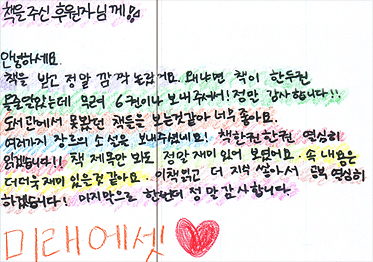 책을 주신 후원자님께!
안녕하세요
책을 받고 정말 깜짝 놀랐거요. 왜냐면 책이 한두권
올줄알았는데 무려 6권이나 보내주셔서! 정말 감사합니다!!
도서관에서 못봤던 책들을 보는것같아 너무좋아요.
여러가지 장르의 소설을 보내주셨네요! 책한권한권 열심히
읽겠습니다!! 책 제목만 봐도 정말재미있어 보였어요. 속 내용은
더더욱재미 있을것 같아요. 이책읽고 더 지식 쌓아서 열심히
하겠습니다! 마지막으로 한번더 정말감사합니다.
미래에셋